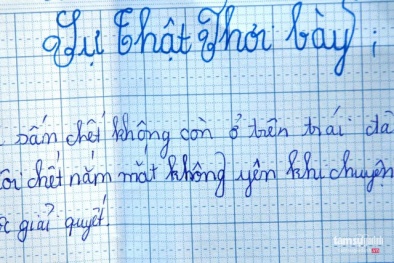 Sự thật Phơi bày :
bấm chết không còn ở trên trái đấ
ôi chết nằm mắt không yên khi chuyện
c giải quyết.
tamsugiadinh
.vn